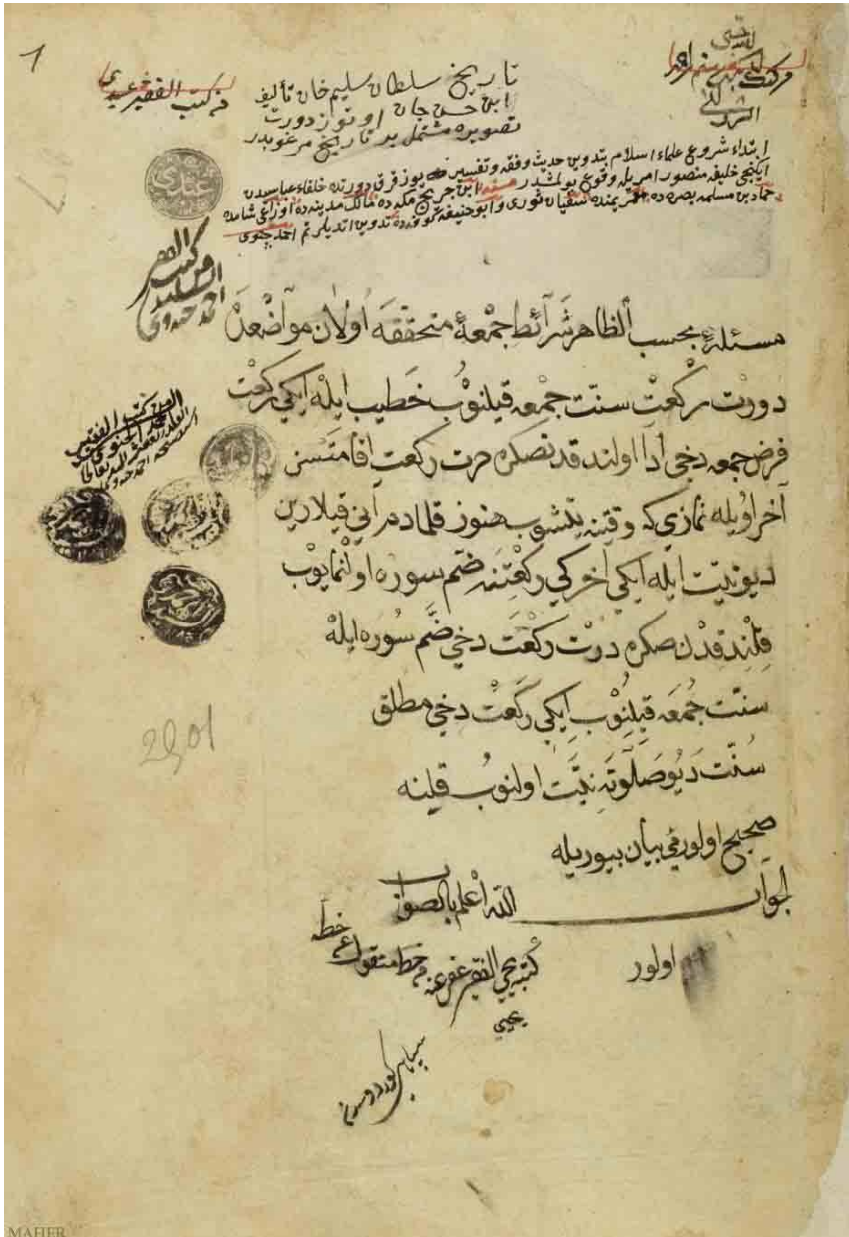 1
من كتب الفقير
تاريخ سلطان سليم خان تأليف
ابن حسن جان اوتوز دورت
تصويره مشتمل بر تاريخ مرغوبدر
ابتداء شروع علماء اسلام بتدوين حديث وفقه وتفسير يوز قرق دورتده خلفاء عباسيدن
ايكنجى خليفه منصور امريله وقوع بولمشدر ابن جريج مكه ده مالك مدينه ده اوزاعى شامده
حماد بن سلمه بصره ده معمر يمنده سفيان ثورى وابو حنيفه كوفه ده تدوين اتديلر
عبدى
مسئله بحسب الظاهر شرائط جمعهٔ متحققه اولان مواضعده
دورت ركعت سنت جمعه قيلنوب خطيب ايله ايكي ركعت
فرض جمعه دخي ادا اولندقدنصكره درت ركعت اقامتسز
آخر اويله نمازي كه وقتينه يتشوب هنوز قلمادم اني قيلارين
ديو نيت ايله ايكي آخركي ركعتنه ضم سوره اولنمايوب
قلندقدن صكره درت ركعت دخي ضم سوره ايله
سنت جمعه قيلنوب ايكي ركعت دخي مطلق
سنت ديو صلوته نيت اولنوب قلينه
صحيح اولورمي بيان بيوريله
الجواب الله اعلم بالصواب
اولور
كتبه يحيى الفقير عفي عنه
من خط منقول عن خطه
يحيى
2901
MAFIER